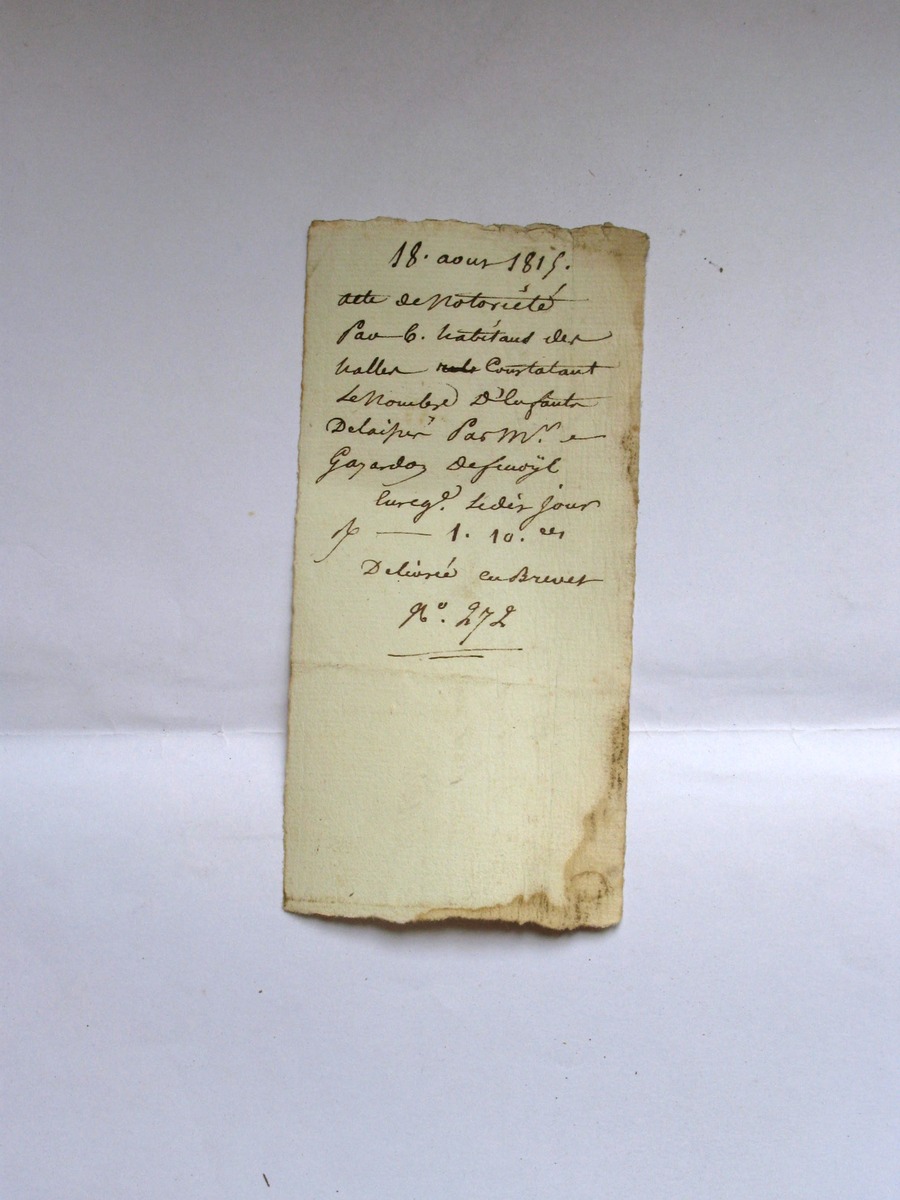 18. aout 1815.
acte de Notoriété
Par 6. habitans des
halles Constatant
Le Nombre D'Enfants
Delaissés Par Mr.
Gazardoz
Enregé. Ledit jour
f — 1. 10. ces
Delivré en Brevet
No. 272